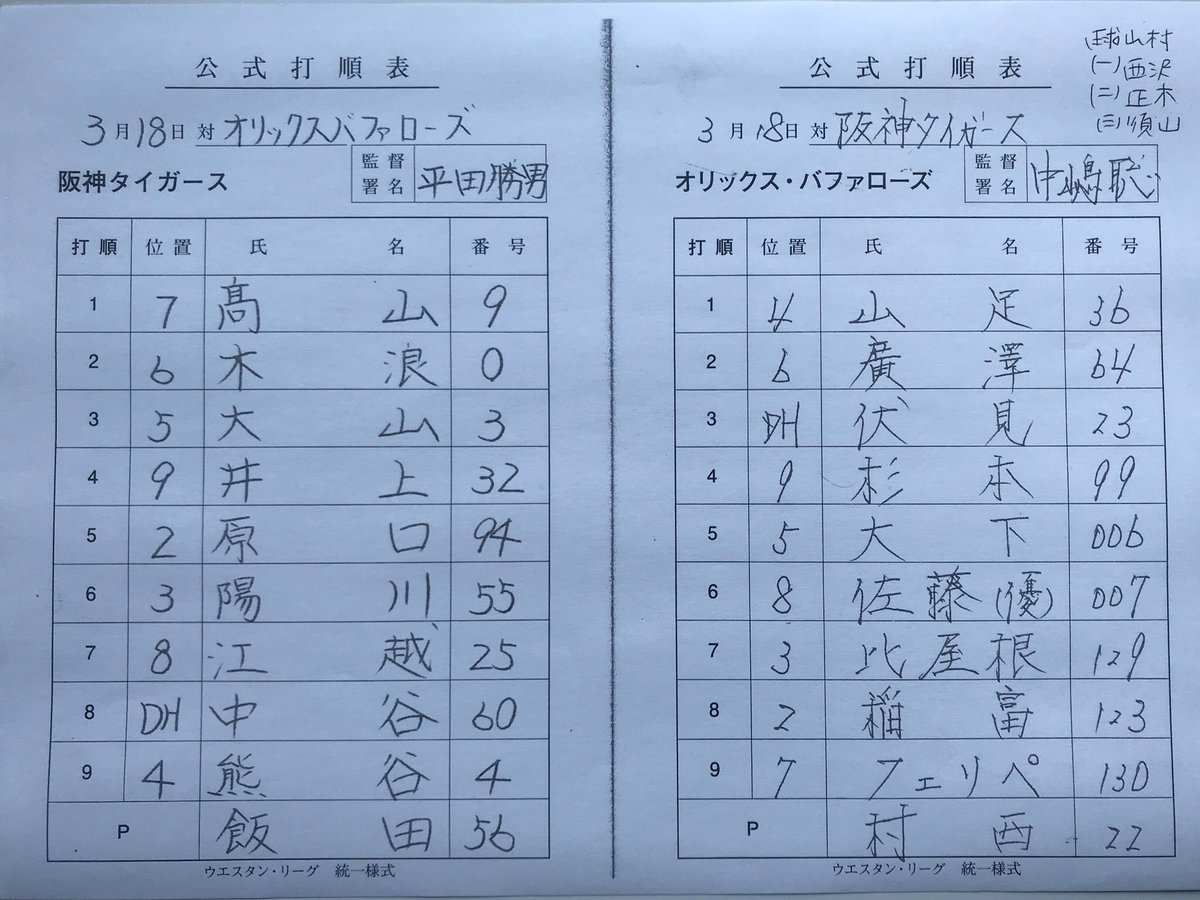 公式打順表
3月18日 対 オリックスバファローズ
阪神タイガース 監督署名 平田勝男
打順 位置 氏名 番号
1 7 髙山 9
2 6 木浪 0
3 5 大山 3
4 9 井上 32
5 2 原口 94
6 3 陽川 55
7 8 江越 25
8 DH 中谷 60
9 4 熊谷 4
P 飯田 56
ウエスタン・リーグ 統一様式
球山村
(一)西沢
(二)正木
(三)須山
公式打順表
3月18日 対 阪神タイガース
オリックス・バファローズ 監督署名 中嶋聡
打順 位置 氏名 番号
1 4 山足 36
2 6 廣澤 64
3 DH 伏見 23
4 9 杉本 99
5 5 大下 006
6 8 佐藤(優) 007
7 3 比屋根 129
8 2 稲富 123
9 7 フェリペ 130
P 村西 22
ウエスタン・リーグ 統一様式